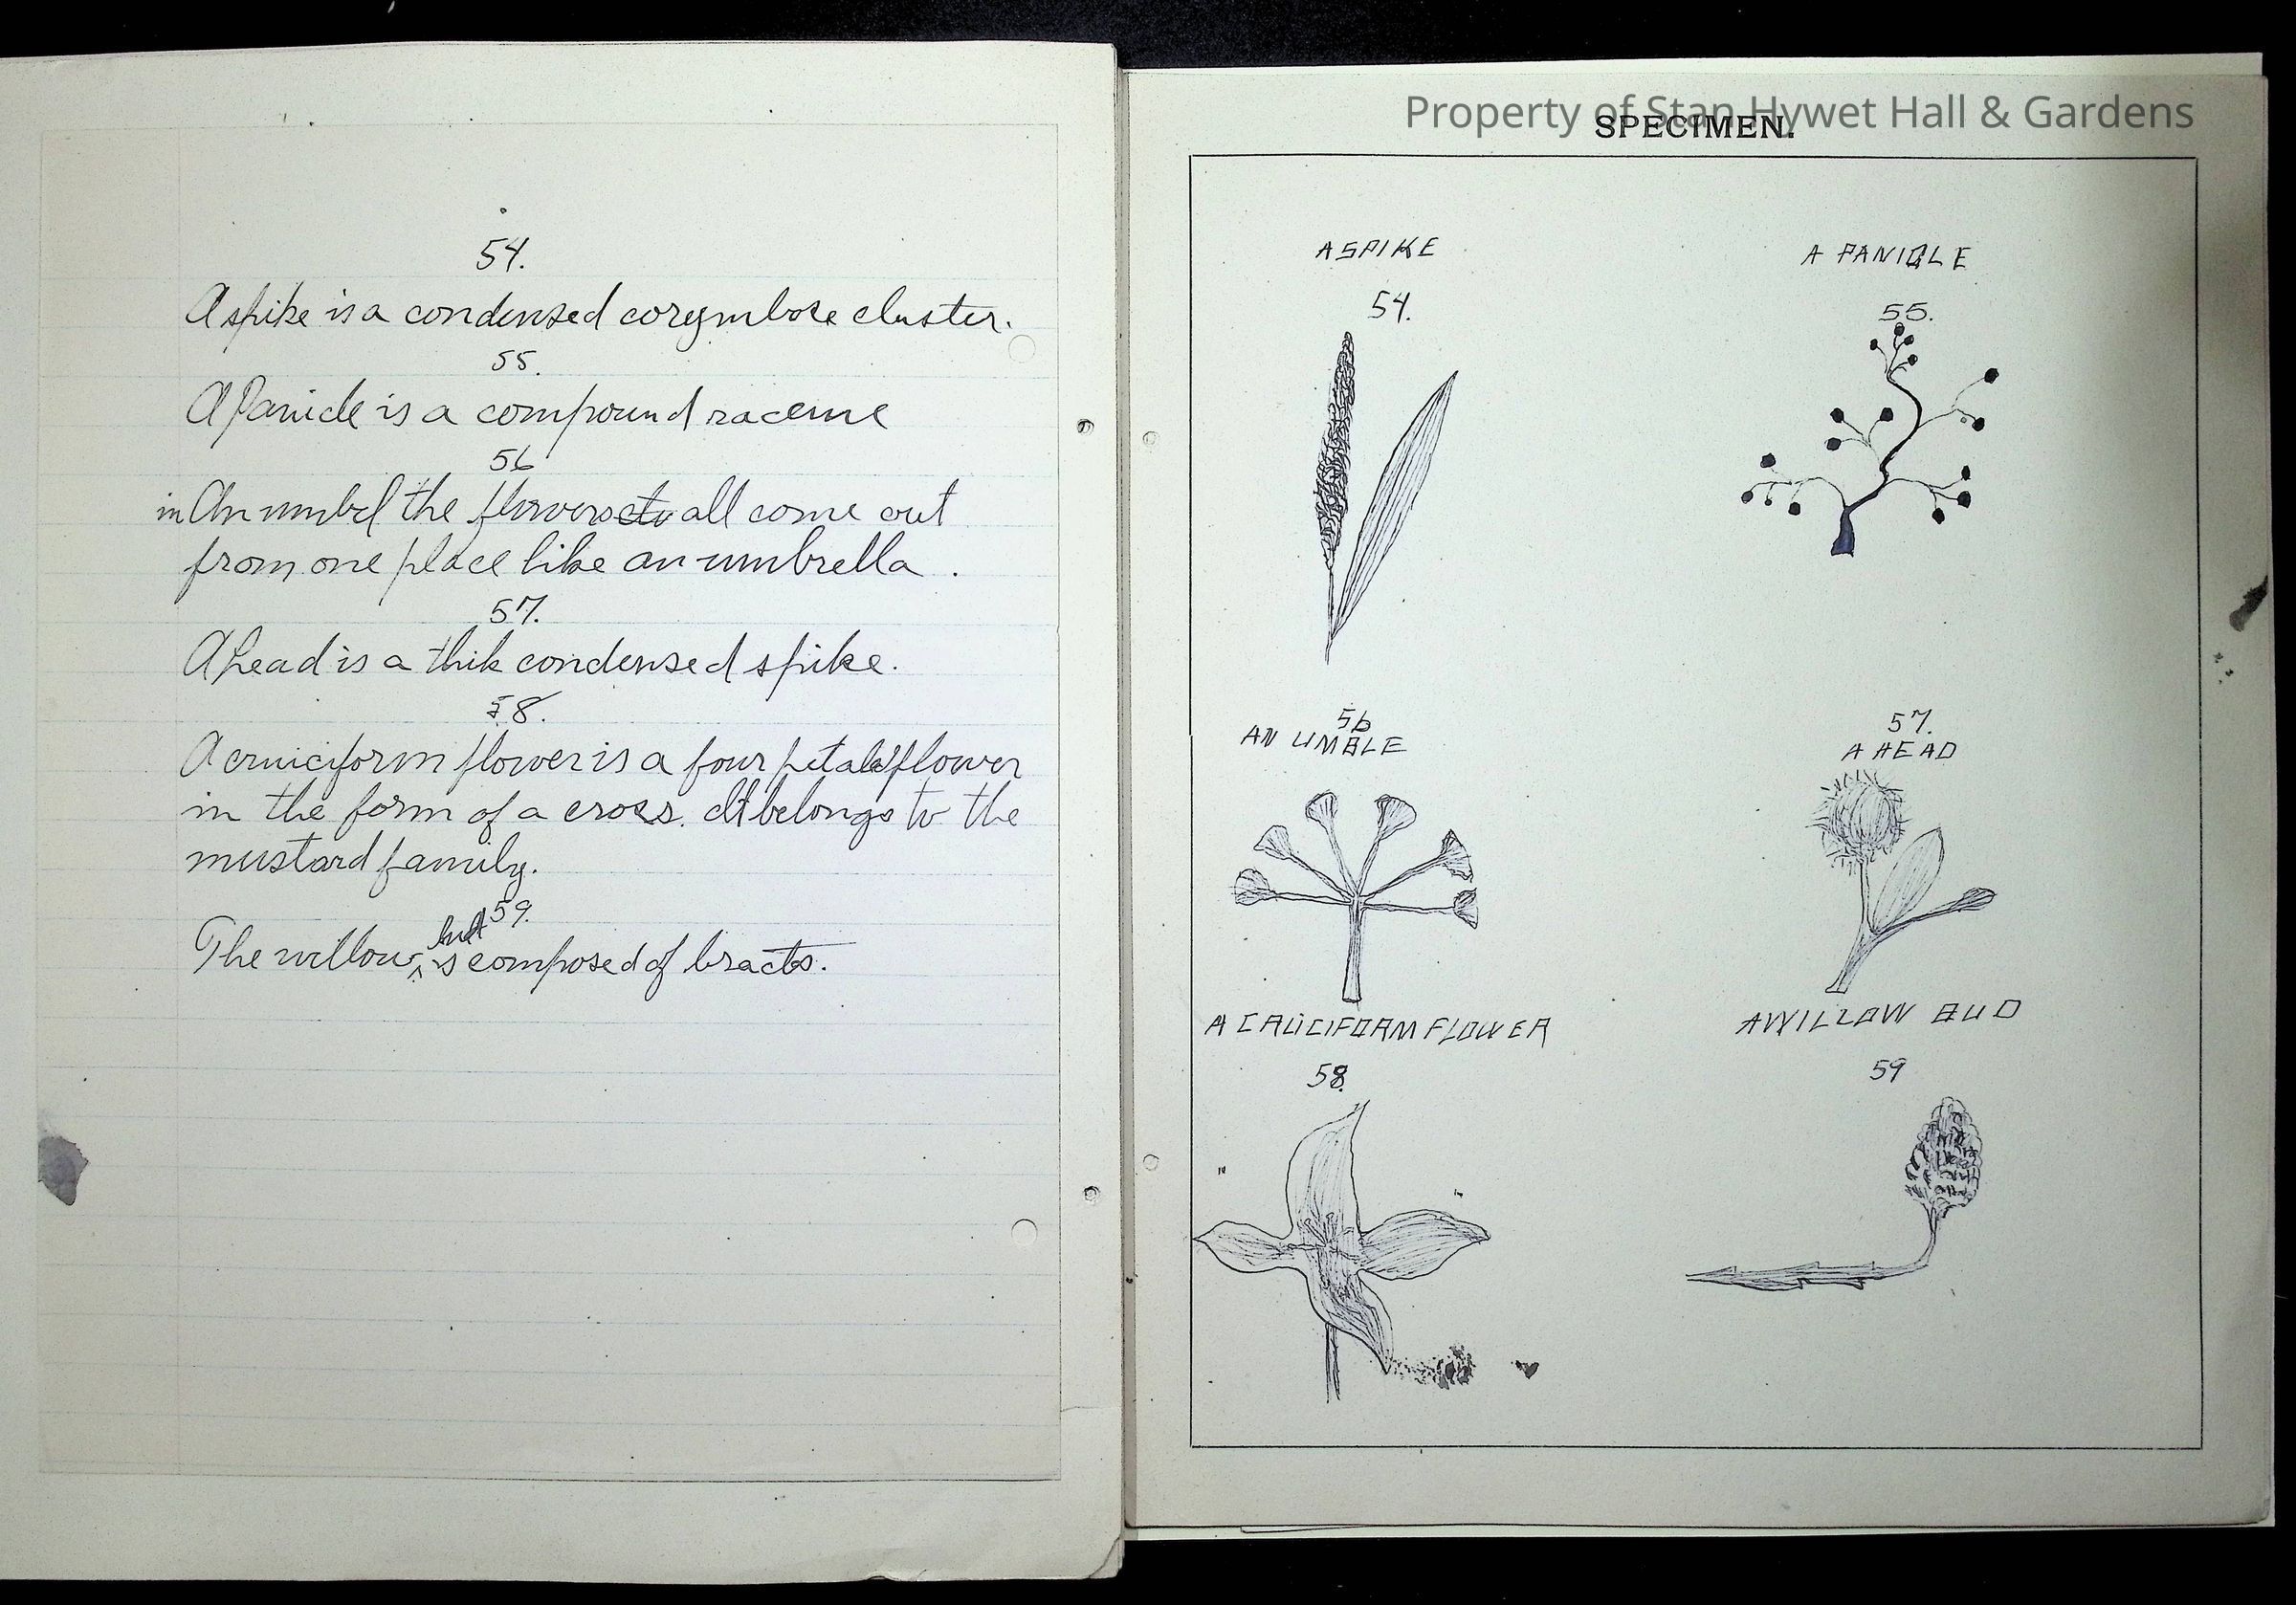 54.
A spike is a condensed corymbose cluster.
55.
A Panicle is a compound raceme
56
in An umbel the flowers etc all come out
from one place like an umbrella .
57.
A head is a thik condensed spike.
58.
A cruciform flower is a four petaled flower
in the form of a cross. It belongs to the
mustard family.
59.
bud
The willow, is composed of bracts.
Property of Stan Hywet Hall & Gardens
SPECIMEN.
A SPIKE
54.
A PANICLE
55.
56
AN UMBLE
57.
A HEAD
A CRUCIFORM FLOWER
58.
A WILLOW BUD
59